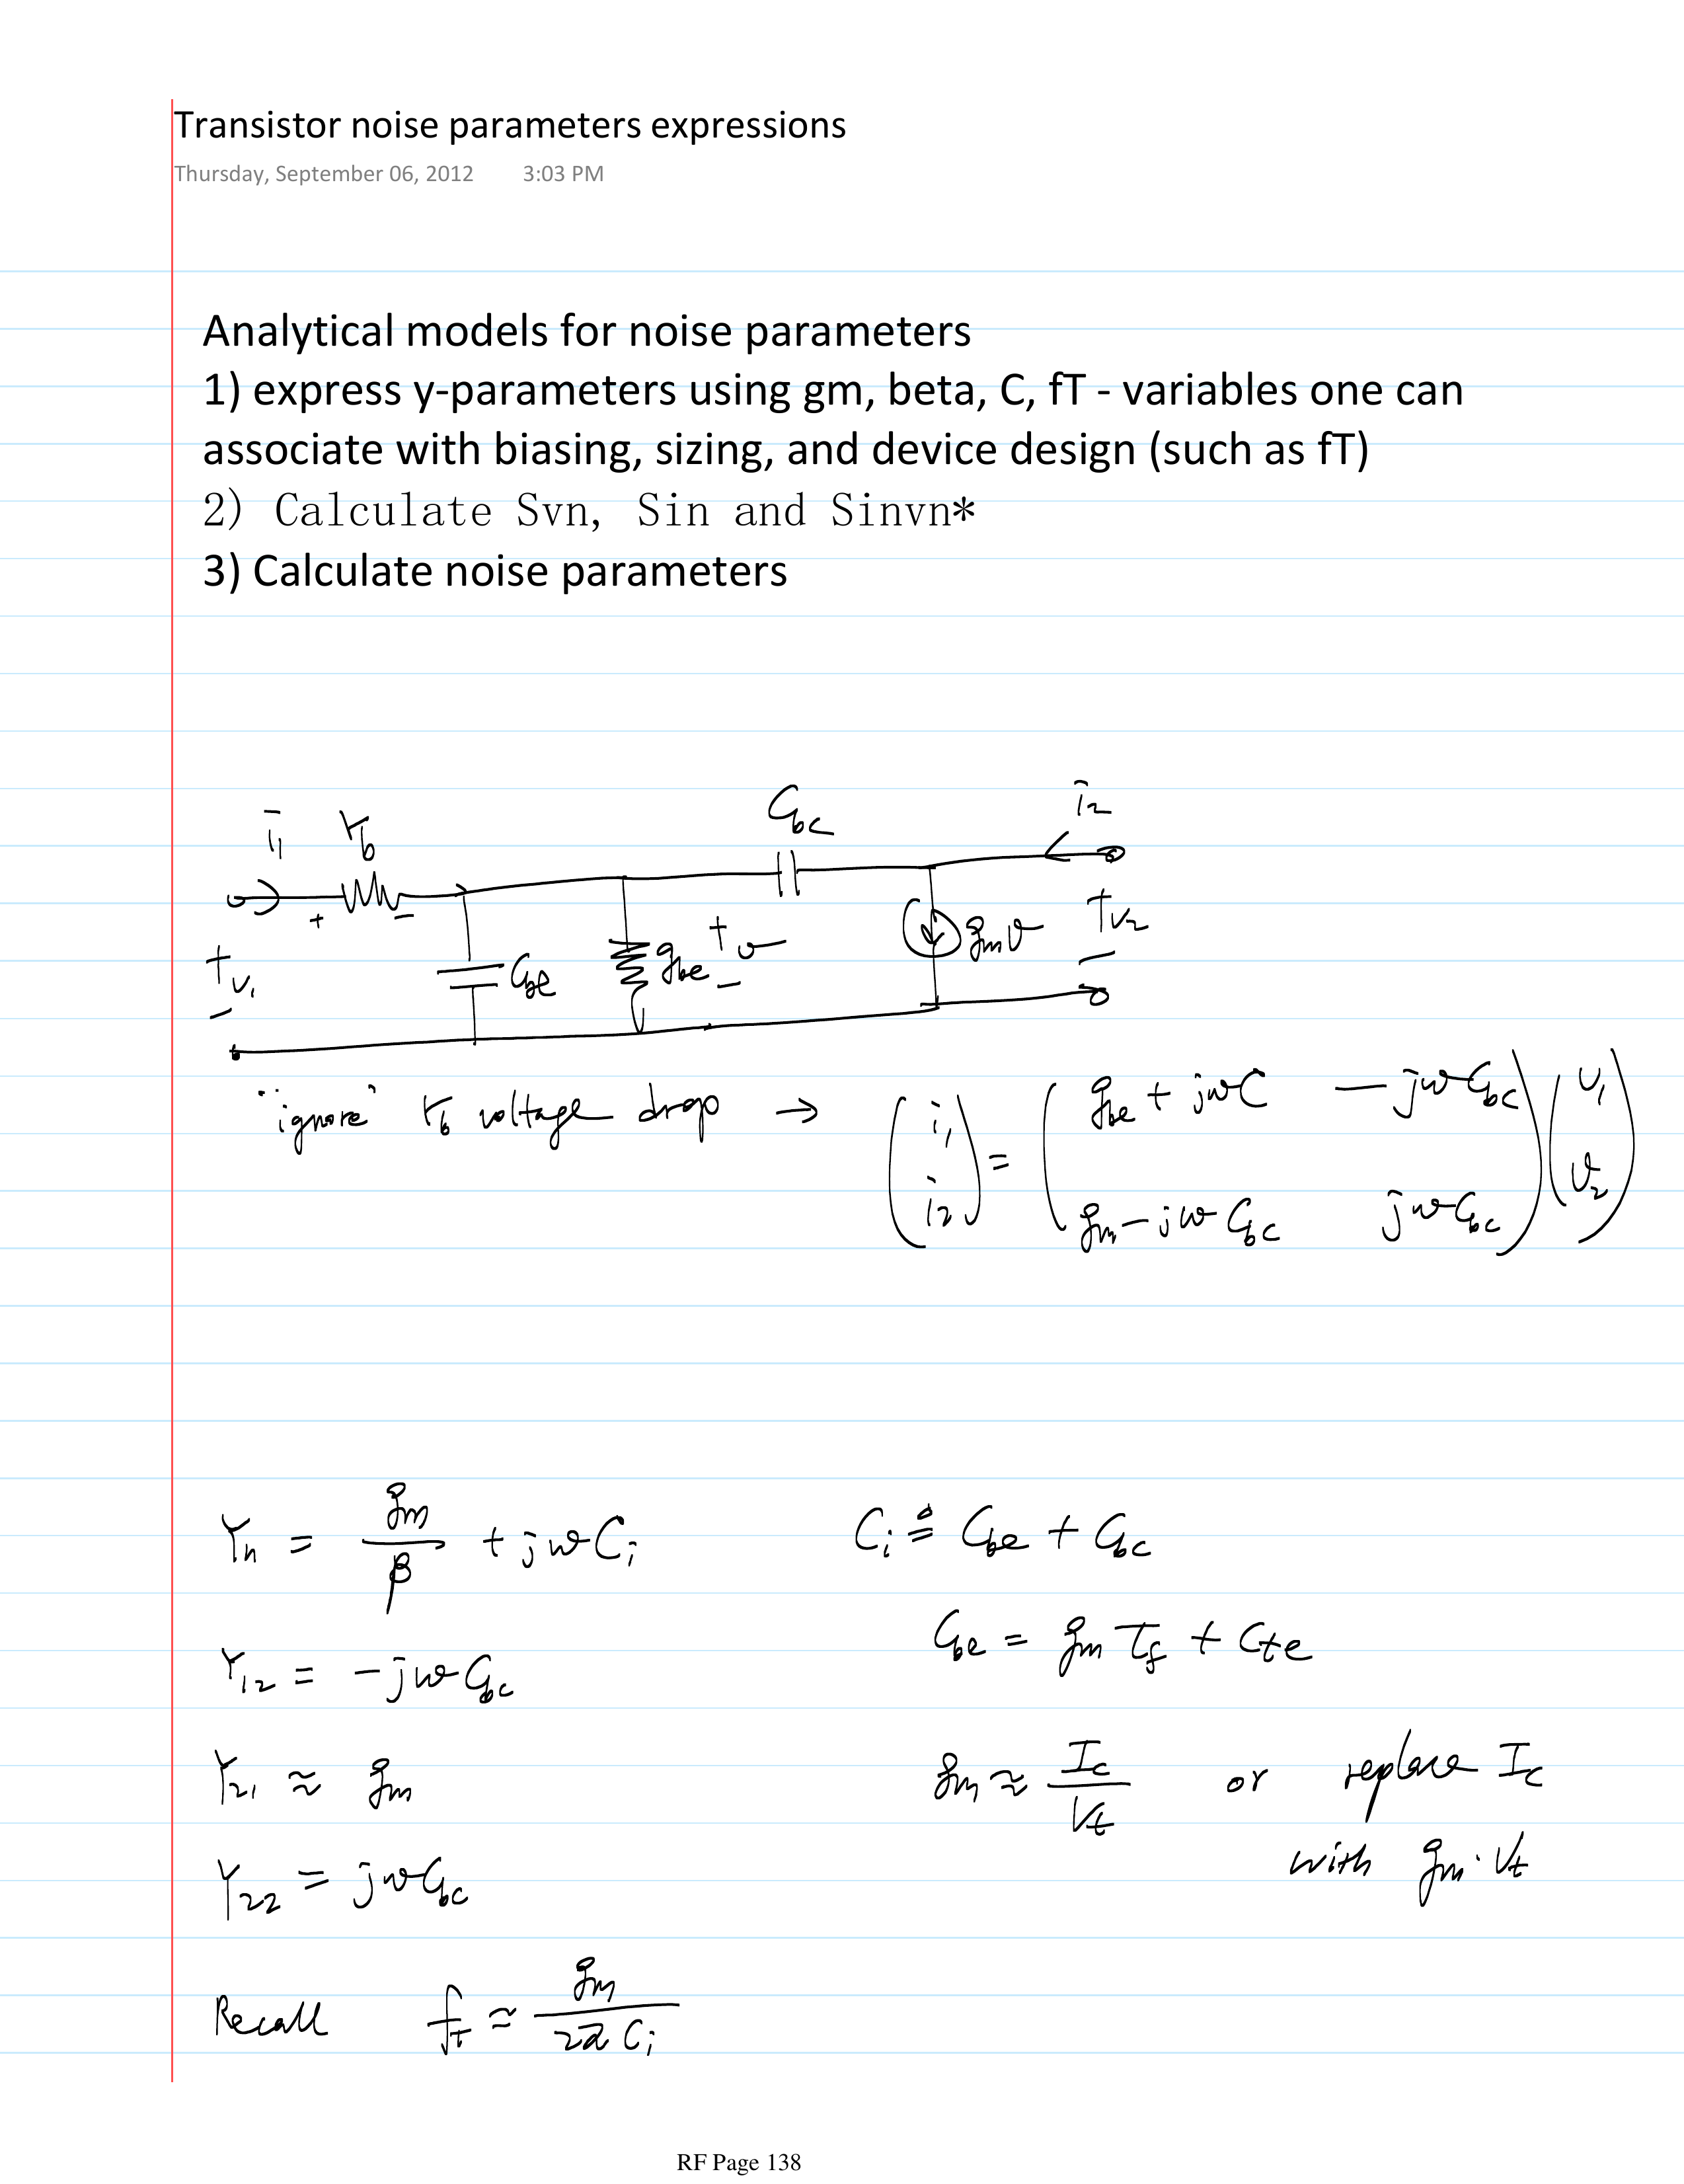 Transistor noise parameters expressions
Thursday, September 06, 2012 3:03 PM
Analytical models for noise parameters
1) express y-parameters using gm, beta, C, fT - variables one can
associate with biasing, sizing, and device design (such as fT)
2) Calculate Svn, Sin and Sinvn*
3) Calculate noise parameters
i₁ r_b C_bc i₂
+ −
+ v₁ − C_be g_be + v − g_m v + v₂ −
"ignore" r_b voltage drop → (i₁ i₂) = (g_be + jωC −jωC_bc g_m − jωC_bc jωC_bc) (v₁ v₂)
Y₁₁ = g_m/β + jωC_i C_i ≜ C_be + C_bc
C_be = g_m τ_f + C_te
Y₁₂ = −jωC_bc
Y₂₁ ≈ g_m g_m ≈ I_c/V_t or replace I_c
with g_m · V_t
Y₂₂ = jωC_bc
Recall f_T ≈ g_m/2π C_i
RF Page 138